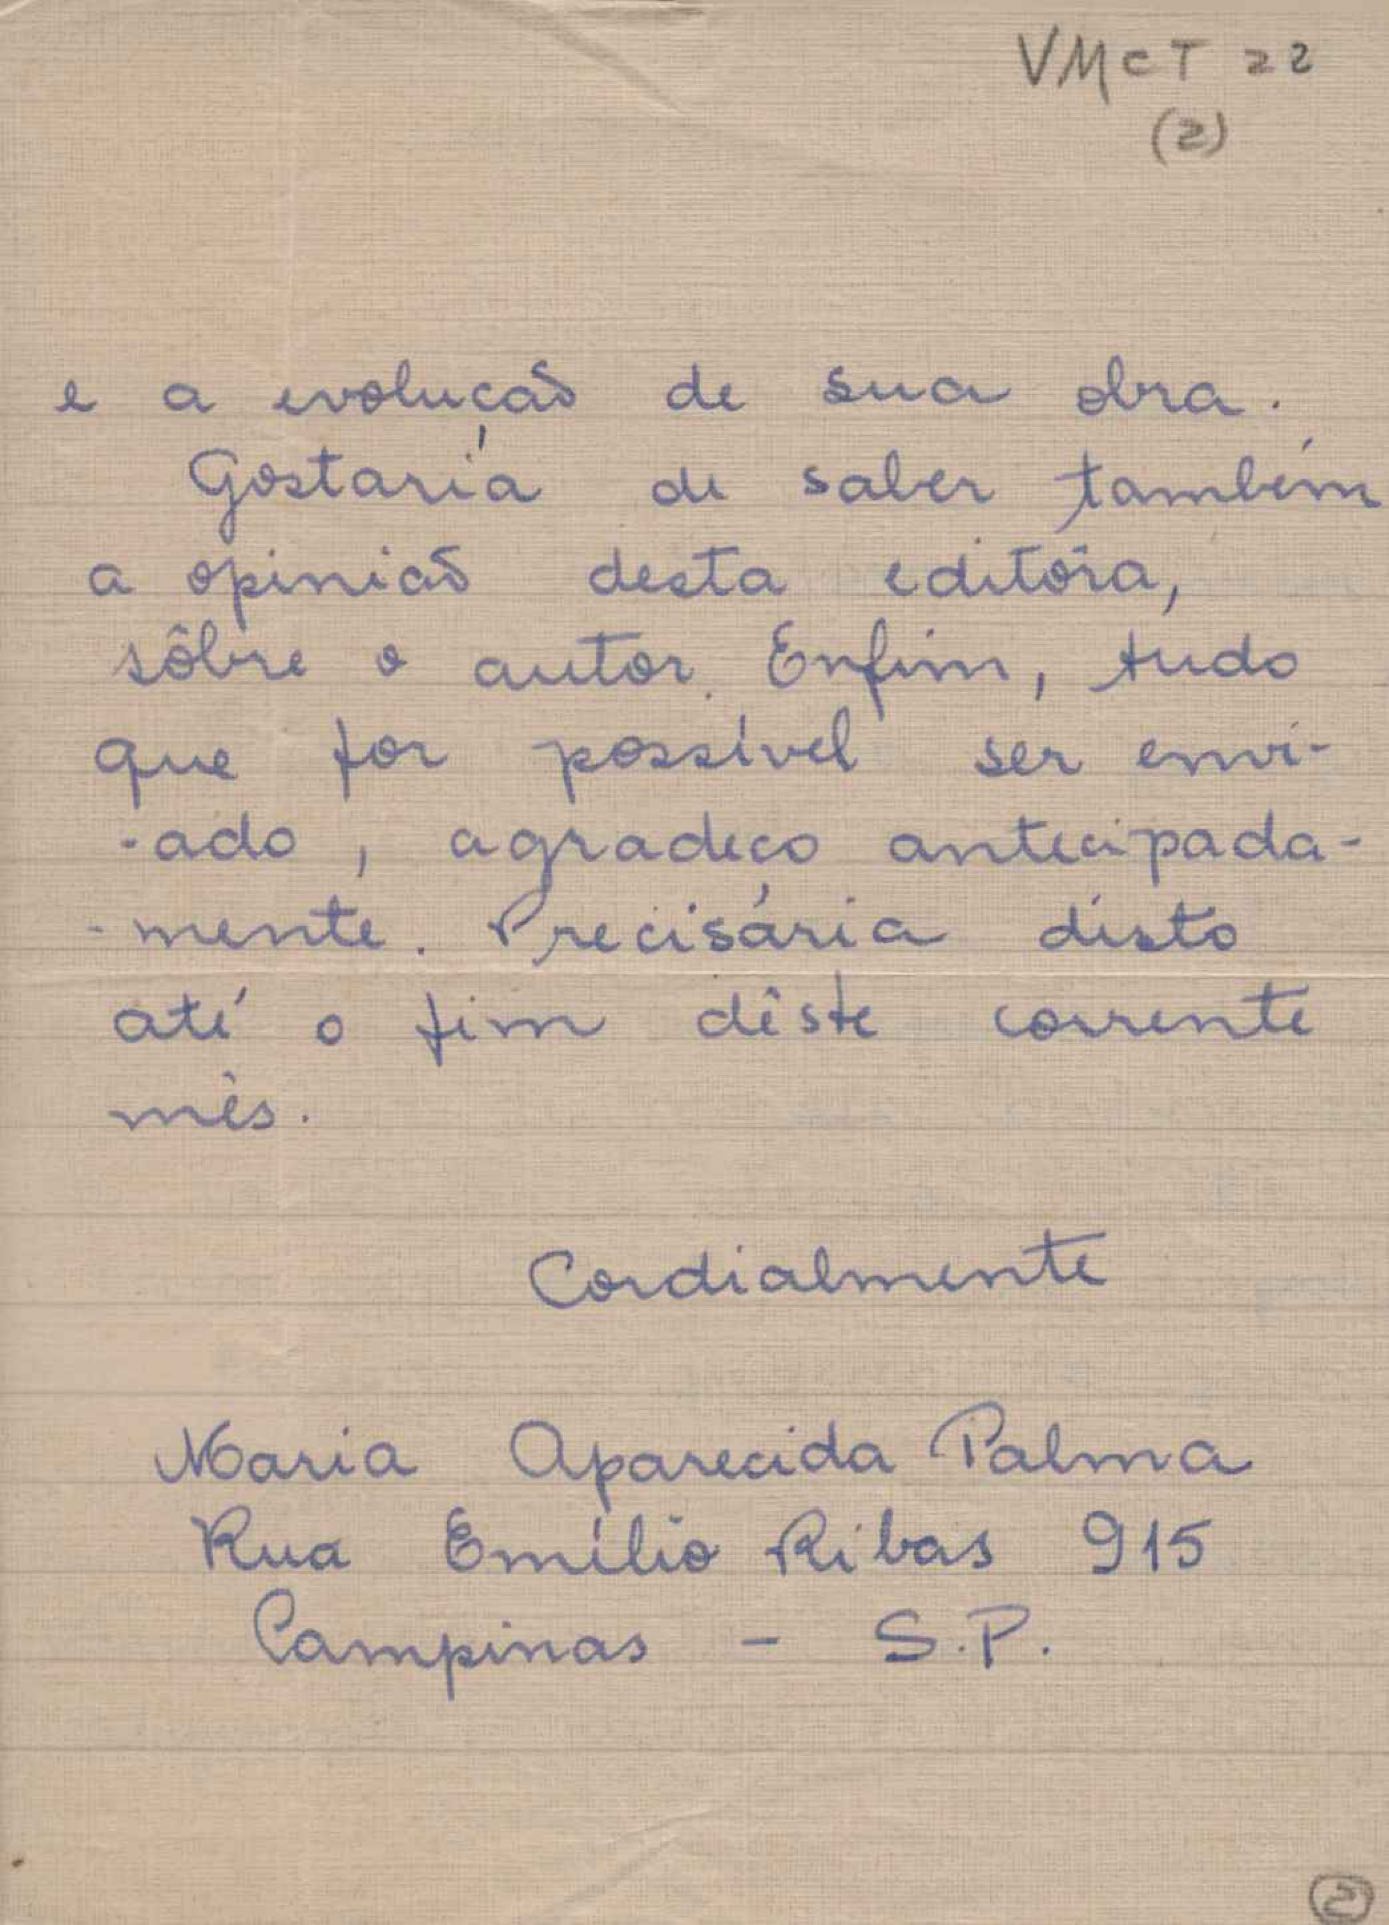 VMcT 22
(2)
e a evolução de sua obra.
Gostaria de saber também
a opinião desta editôra,
sôbre o autor. Enfim, tudo
que for possível ser envi-
-ado, agradeço antecipada-
-mente. Precisária disto
até o fim dêste corrente
mês.
Cordialmente
Maria Aparecida Palma
Rua Emílio Ribas 915
Campinas - S.P.
2